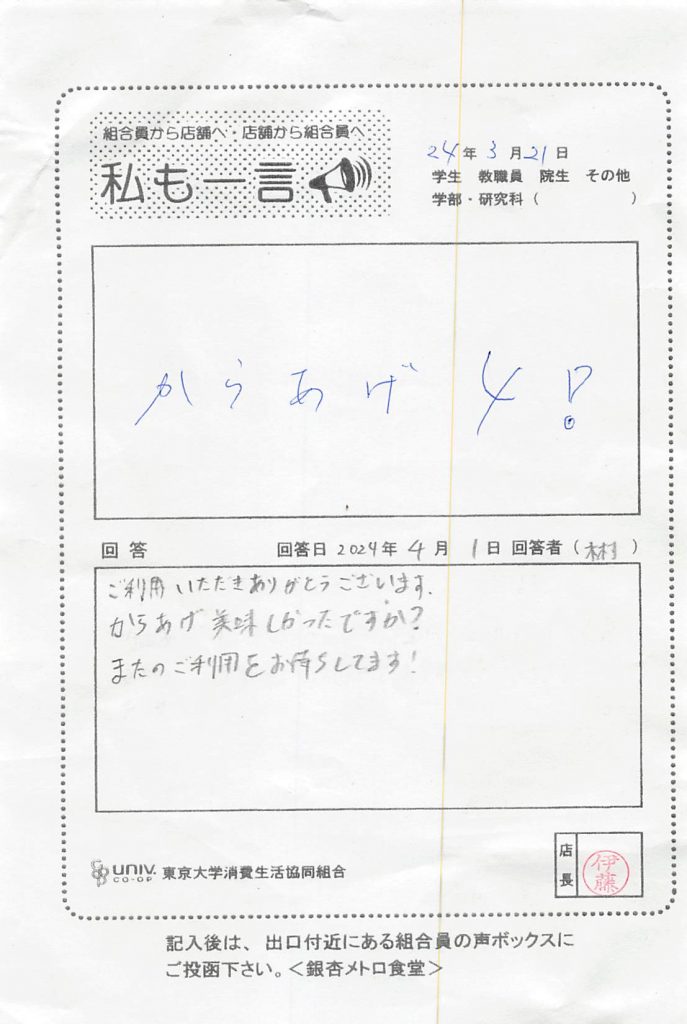 組合員から店舗へ・店舗から組合員へ
私も一言
24年3月21日
学生 教職員 院生 その他
学部・研究科( )
からあげ 4!
回答 回答日 2024年4月1日 回答者(木村)
ご利用いただきありがとうございます。
からあげ美味しかったですか?
またのご利用をお待ちしてます!
UNIV. CO-OP 東京大学消費生活協同組合
店長 伊藤
記入後は、出口付近にある組合員の声ボックスに
ご投函下さい。<銀杏メトロ食堂>